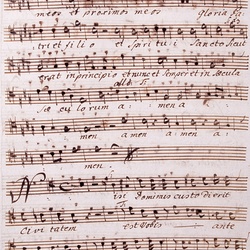 meos et proximos meos gloria Pa:
tri et filio et Spiritui Sancto Sicut
erat in principio et nunc et semper et in Sæcula
Sæculorum a: men a
men amen a: a:
men
Nisi Dominus custodierit
Civitatem est Vobis ante